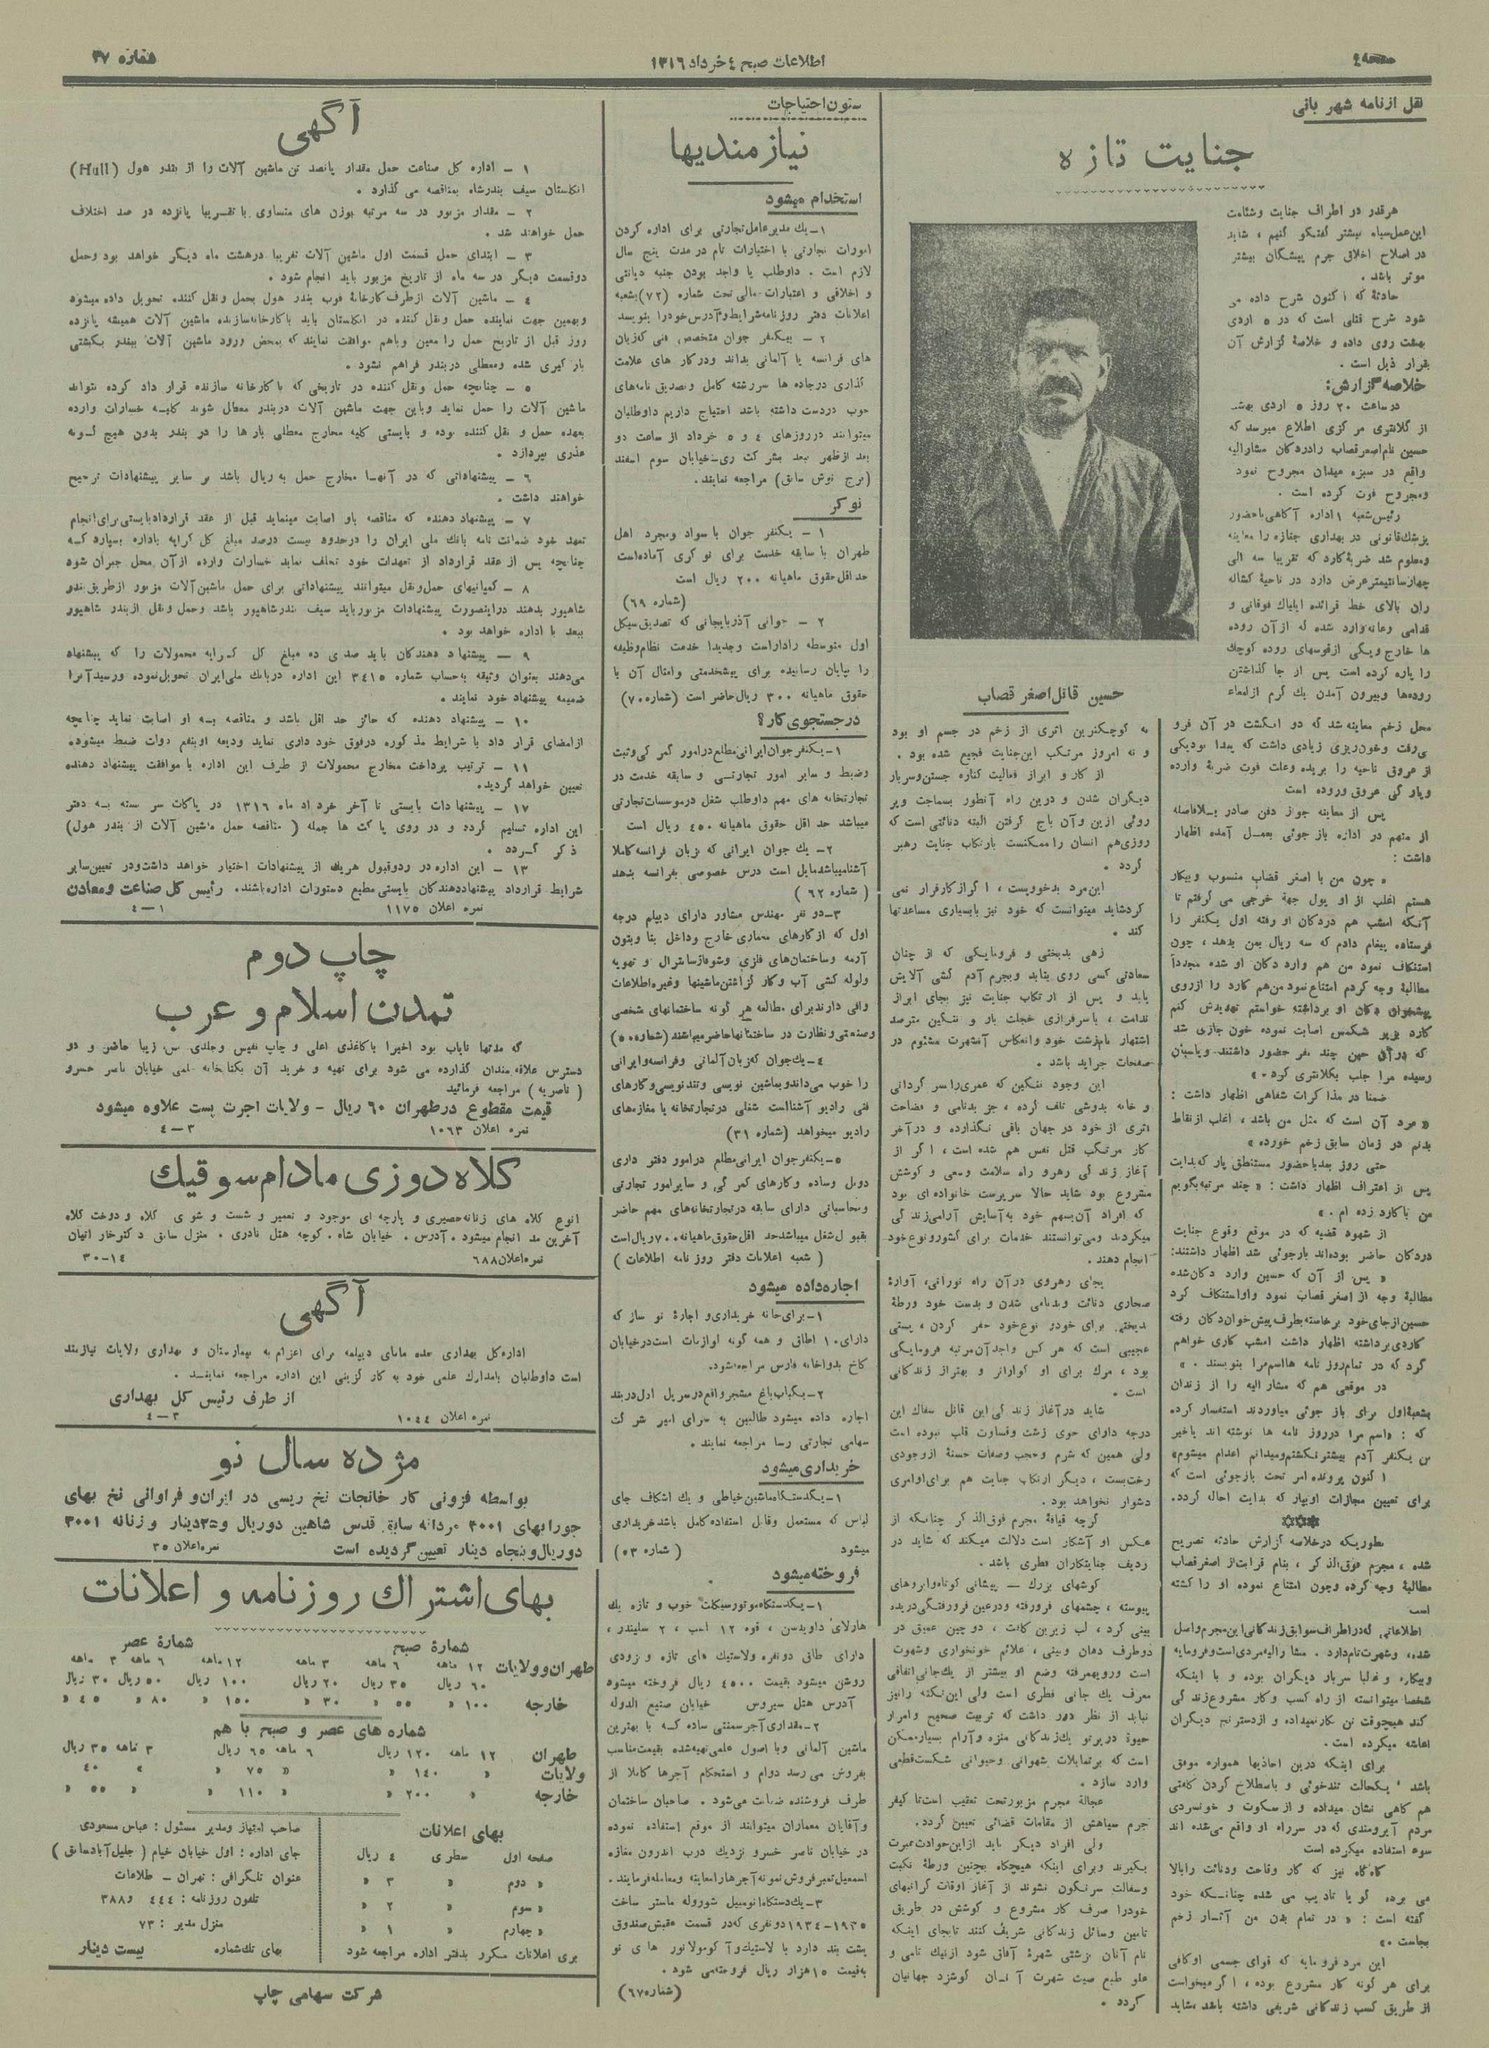 صفحه ٤
اطلاعات صبح ٤ خرداد ١٣١٦
شماره ٣٧
نقل از نامه شهربانی
جنایت تازه
هرقدر در اطراف جنایت وشئامت
این عمل سیاه بیشتر گفتگو کنیم ، شاید
در اصلاح اخلاق جرم پیشگان بیشتر
موثر باشد .
حادثهٔ که اکنون شرح داده می
شود شرح قتلی است که در ٥ اردی
بهشت روی داده و خلاصهٔ گزارش آن
بقرار ذیل است .
خلاصه گزارش:
در ساعت ٢٠ روز ٥ اردی بهشت
از کلانتری مرکزی اطلاع میرسد که
حسین نام اصغر قصاب را در دکان مشارالیه
واقع در سبزه میدان مجروح نمود
ومجروح فوت کرده است .
رئیس شعبه ١ اداره آگاهی با حضور
پزشک قانونی در بهداری جنازه را معاینه
ومعلوم شد ضربهٔ کارد که تقریبا سه الی
چهار سانتیمتر عرض دارد در ناحیهٔ کشاله
ران بالای خط
قدامی وعانه وارد شده که از آن روده
ها خارج ویکی از قوسهای روده کوچک
را پاره کرده است پس از جا گذاشتن
روده‌ها وبیرون آمدن یک کرم از امعاء
محل زخم معاینه شد که دو انگشت در آن فرو
می‌رفت وخون ریزی زیادی داشت که پیدا بود یکی
از عروق ناحیه را بریده وعلت فوت ضربهٔ وارده
وپارگی عروق وروده است
پس از معاینه جواز دفن صادر بلافاصله
از متهم در اداره باز جوئی بعمل آمده اظهار
داشت :
« چون من با اصغر قصاب منسوب وبیکار
هستم اغلب از او پول جهة خرجی می گرفتم تا
آنکه امشب هم دردکان او رفته اول یکنفر را
فرستاده پیغام دادم که سه ریال بمن بدهد ، چون
استنکاف نمود من هم وارد دکان او شده مجدداً
مطالبهٔ وجه کردم امتناع نمود من هم کارد را از روی
پیشخوان دکان او برداشته خواستم تهدیدش کنم
کارد بزیر شکمش اصابت نموده خون جاری شد
که در آن حین چند نفر حضور داشتند وپاسبان
رسیده مرا جلب بکلانتری کرد . »
ضمنا در مذاکرات شفاهی اظهار داشت :
« مرد آن است که مثل من باشد ، اغلب از نقاط
بدنم در زمان سابق زخم خورده »
حتی روز بعد با حضور مستنطق پارکه بدایت
پس از اعتراف اظهار داشت : « چند مرتبه بگویم
من با کارد زده ام . »
از شهود قضیه که در موقع وقوع جنایت
دردکان حاضر بوده‌اند بازجوئی شد اظهار داشتند:
« پس از آن که حسین وارد دکان شده
مطالبهٔ وجه از اصغر قصاب نمود واو استنکاف کرد
حسین از جای خود برخاسته بطرف پیش خوان دکان رفته
کارد برداشته اظهار داشت امشب کاری خواهم
کرد که در تمام روز نامه ها اسم مرا بنویسند . »
در موقعی هم که مشار الیه را از زندان
بشعبهٔ اول برای باز جوئی میاوردند استفسار کرده
که : « اسم مرا در روز نامه ها نوشته اند یا خیر
من یکنفر آدم بیشتر نکشتم ومیدانم اعدام میشوم»
اکنون پرونده امر تحت بازجوئی است که
برای تعیین مجازات اوبپارکه بدایت احاله گردد.
✡✡✡
بطوریکه درخلاصه گزارش حادثه تصریح
شده ، مجرم فوق الذکر ، بنام قرابت از اصغر قصاب
مطالبهٔ وجه کرده وچون امتناع نموده او را کشته
است
اطلاعاتی که در اطراف سوابق زندگانی این مجرم واصل
شده، وشهرت تام دارد . مشارالیه مردی است وفرومایه
وبیکاره وغالبا سربار دیگران بوده و با اینکه
شخصا میتوانسته از راه کسب وکار مشروع زندگی
کند هیچوقت تن بکار نمیداده و از دسترنج دیگران
اعاشه میکرده است .
برای اینکه درین اخاذیها همواره موفق
باشد ، یکحالت تندخوئی و باصطلاح گردن کلفتی
هم گاهی نشان میداده و از سکوت و خونسردی
مردم آبرومندی که در سر راه او واقع می‌شده اند
سوء استفاده میکرده است
گاه گاه نیز که کار وقاحت ودنائت را بالا
می برده گویا تادیب می شده چنانکه خود
گفته است : « در تمام بدن من آثار زخم
بجاست . »
این مرد فرومایه که قوای جسمی او کافی
برای هر گونه کار مشروع بوده ، اگر میخواست
از طریق کسب زندگانی شریفی داشته باشد ،شاید
حسین قاتل اصغر قصاب
نه کوچکترین اثری از زخم در جسم او بود
و نه امروز مرتکب این جنایت فجیع شده بود .
از کار و ابراز فعالیت کناره جستن وسربار
دیگران شدن و درین راه آنطور بسماجت وپر
روئی ازین وآن باج گرفتن البته دنائتی است که
روزی هم انسان را ممکنست بارتکاب جنایت رهبر
گردد .
این مرد بدخوزیست ، اگر از کار فرار نمی
کرد شاید میتوانست که خود نیز بابسیاری مساعدتها
کند .
زهی بدبختی و فرومایگی که از چنان
سعادتی کسی روی بتابد وبجرم آدم کشی آلایش
یابد و پس از ارتکاب جنایت نیز بجای ابراز
ندامت ، باسرفرازی خجلت بار و ننگین مترصد
اشتهار نام زشت خود وانعکاس آنشهرت مشئوم در
صفحات جراید باشد .
این وجود ننگین که عمری را سر گردانی
و خانه بدوشی تلف کرده ، جز بدنامی و فضاحت
اثری از خود در جهان باقی نگذارده و در آخر
کار مرتکب قتل نفس هم شده است ، اگر از
آغاز زندگی رهرو راه سلامت وسعی و کوشش
مشروع بود شاید حالا سرپرست خانواده ای بود
که افراد آن بسهم خود به آسایش آرامی زندگی
میکردند ومی‌توانستند خدمات برای کشور ونوع خود
انجام دهند .
بجای رهروی در آن راه نورانی، آوارهٔ
صحاری دنائت وبدنامی شدن و بدست خود ورطهٔ
بدبختی برای خود و نوع خود حفر کردن ، پستی
عجیبی است که هر کس واجد آن مرتبه فرومایگی
بود ، مرگ برای او گواراتر و بهتر از زندگانی
است .
شاید در آغاز زندگی این قاتل سفاک این
درجه دارای خوی زشت وقساوت قلب نبوده است
ولی همین که شرم وحجب وصفات حسنهٔ از وجودی
رخت بست ، دیگر ارتکاب جنایت هم برای او امری
دشوار نخواهد بود .
گرچه قیافهٔ مجرم فوق الذکر چنانکه از
عکس او آشکار است دلالت میکند که شاید در
ردیف جنایتکاران فطری باشد .
گوشهای بزرگ – پیشانی کوتاه وابروهای
پیوسته ، چشمهای فرورفته ودرعین فرورفتگی دریده
بینی گرد ، لب زیرین کلفت ، دو چین عمیق در
دوطرف دهان وبینی ، علائم خونخواری وشهوت
است ورویهمرفته وضع او بیشتر از یک جانی اتفاقی
معرف یک جانی فطری است ولی این نکته را نیز
نباید از نظر دور داشت که تربیت صحیح وامرار
حیوة در پرتو یک زندگانی منزه وآرام بسیار ممکن
است که بر تمایلات شهوانی وحیوانی شکست قطعی
وارد سازد .
عجالهٔ مجرم مزبور تحت تعقیب است تا کیفر
جرم سیاهش از مقامات قضائی تعیین گردد.
ولی افراد دیگر باید از این حوادث عبرت
بگیرند وبرای اینکه هیچگاه بچنین ورطهٔ نکبت
وسفالت سرنگون نشوند از آغاز اوقات گرانبهای
خود را صرف کار مشروع و کوشش در طریق
تامین وسائل زندگانی شریف کنند تا بجای اینکه
نام آنان بزشتی شهرهٔ آفاق شود از نیک نامی و
علو طبع صیت شهرت آنان گوشزد جهانیان
گردد .
ستون احتیاجات
نیازمندیها
استخدام میشود
١ – یک مدیر عامل تجارتی برای اداره کردن
امورات تجارتی با اختیارات تام در مدت پنج سال
لازم است . داوطلب با واجد بودن جنبه دیانتی
و اخلاقی و اعتبارات مالی تحت شماره (٧٢) بشعبه
اعلانات دفتر روزنامه شرایط وآدرس خود را بنویسد
٢ – بیکنفر جوان متخصص فنی که زبان
های فرانسه یا آلمانی بداند ودرکار های علامت
گذاری درجاده ها سررشته کامل وتصدیق نامه‌های
خوب دردست داشته باشد احتیاج داریم داوطلبان
میتوانند در روزهای ٤ و ٥ خرداد از ساعت دو
بعد از ظهر ببعد بشرکت ری-خیابان سوم اسفند
(برج نوش سابق) مراجعه نمایند.
نوکر
١ – یکنفر جوان با سواد ومجرد اهل
طهران با سابقه خدمت برای نوکری آماده است
حداقل حقوق ماهیانه ٢٠٠ ریال است
(شماره ٦٩)
٢ – جوانی آذربایجانی که تصدیق سیکل
اول متوسطه را داراست وجدیدا خدمت نظام وظیفه
را بپایان رسانیده برای پیشخدمتی وامثال آن با
حقوق ماهیانه ٣٠٠ ریال حاضر است (شماره ٧٠)
در جستجوی کار؟
١ – یکنفر جوان ایرانی مطلع در امور گمرکی وثبت
وضبط و سایر امور تجارتی و سابقه خدمت در
تجارتخانه های مهم داوطلب شغل درموسسات تجارتی
میباشد حد اقل حقوق ماهیانه ٤٥٠ ریال است
٢- یک جوان ایرانی که بزبان فرانسه کاملا
آشنا میباشد مایل است درس خصوصی بفرانسه بدهد
( شماره ٦٢ )
٣-دو نفر مهندس مشاور دارای دیپلم درجه
اول که از کارهای معماری خارج وداخل بنا وبتون
آرمه وساختمان‌های فلزی وشوفاژ سانترال و تهویه
ولوله کشی آب وکار گزاشتن ماشینها وغیره اطلاعات
وافی دارند برای مطالعه هر گونه ساختمانهای شخصی
وصنعتی و نظارت در ساختمانها حاضر میباشند (شماره ٥٠)
٤ – یک جوان که زبان آلمانی وفرانسه وایرانی
را خوب می‌داند وبماشین نویسی وتند نویسی وکارهای
فنی رادیو آشنا است شغلی در تجارتخانه یا مغازه‌های
رادیو میخواهد (شماره ٣١)
٥ – یکنفر جوان ایرانی مطلع در امور دفتر داری
دوبل وساده وکارهای گمرگی و سایر امور تجارتی
ومحاسباتی دارای سابقه درتجارتخانه‌های مهم حاضر
بقبول شغل میباشد حد اقل حقوق ماهیانه ٧٠٠ ریال است
( شعبه اعلانات دفتر روز نامه اطلاعات )
اجاره داده میشود
١ – برای خانه خریداری و اجارهٔ نو ساز که
دارای ١٠ اطاق و همه گونه لوازمات است در خیابان
کاخ بدواخانه فارس مراجعه شود.
٢ – یکباب باغ مشجر واقع در سرپل اول دربند
اجاره داده میشود طالبین به سرای امیر شرکت
سهامی تجارتی رسا مراجعه نمایند .
خریداری میشود
١ – یکدستگاه ماشین خیاطی و یک اشکاف جای
لباس که مستعمل وقابل استفاده کامل باشد خریداری
میشود ( شماره ٥٣ )
فروخته میشود
١ – یکدستگاه موتورسیکلت خوب و تازه یک
هارلای داویدسن ، قوه ١٢ اسب ، ٢ سلیندر ،
دارای طاق دونفره ولاستیک های تازه و بزودی
روشن میشود بقیمت ٤٥٠٠ ریال فروخته میشود
آدرس هتل سیروس خیابان صنیع الدوله
٢ – مقداری آجر سمنتی ساده که با بهترین
ماشین آلمانی وبا اصول علمی تهیه شده بقیمت مناسب
بفروش می رسد دوام و استحکام آجرها کاملا از
طرف فروشنده ضمانت می‌شود . صاحبان ساختمان
وآقایان معماران میتوانند از موقع استفاده نموده
در خیابان ناصر خسرو نزدیک درب اندرون مغازه
اسمعیل تمبر فروش نمونه آجرها را معاینه ومعامله فرمایند.
٣ – یک دستگاه اتومبیل شوروله ماستر ساخت
١٩٣٥-١٩٣٤ دونفری که در قسمت عقبش صندوق
پشت بند دارد با لاستیک و آکومولاتور های نو
به قیمت ١٥ هزار ریال فروخته می شود .
(شماره ٦٧)
آگهی
١ – اداره کل صناعت حمل مقدار پانصد تن ماشین آلات را از بندر هول (Hull)
انگلستان سیف بندرشاه بمناقصه می گذارد .
٢ – مقدار مزبور در سه مرتبه بوزن های متساوی با تقسریبا پانزده در صد اختلاف
حمل خواهند شد .
٣ – ابتدای حمل قسمت اول ماشین آلات تقریبا درهشت ماه دیگر خواهد بود وحمل
دوقسمت دیگر در سه ماه از تاریخ مزبور باید انجام شود .
٤ – ماشین آلات از طرف کارخانهٔ فوب بندر هول بحمل ونقل کننده تحویل داده میشود
وبهمین جهت نماینده حمل ونقل کننده در انگلستان باید با کارخانه سازنده ماشین آلات همیشه پانزده
روز قبل از تاریخ حمل را معین وباهم موافقت نمایند که بمحض ورود ماشین آلات ببندر بکشتی
بار گیری شده ومعطلی دربندر فراهم نشود .
٥ – چنانچه حمل ونقل کننده در تاریخی که با کارخانه سازنده قرار داد کرده نتواند
ماشین آلات را حمل نماید وباین جهت ماشین آلات دربندر معطل شوند کلیه خسارات وارده
بعهده حمل و نقل کننده بوده و بایستی کلیه مخارج معطلی بارها را در بندر بدون هیچ گونه
عذری بپردازد .
٦ – پیشنهاداتی که در آنها مخارج حمل به ریال باشد بر سایر پیشنهادات ترجیح
خواهند داشت .
٧ – پیشنهاد دهنده که مناقصه باو اصابت مینماید قبل از عقد قرارداد بایستی برای انجام
تعهد خود ضمانت نامه بانک ملی ایران را درحدود بیست درصد مبلغ کل کرایه باداره بسپارد که
چنانچه پس از عقد قرارداد از تعهدات خود تخلف نماید خسارات وارده از آن محل جبران شود
٨ – کمپانیهای حمل ونقل میتوانند پیشنهاداتی برای حمل ماشین آلات مزبور از طریق بندر
شاهپور بدهند دراینصورت پیشنهادات مزبور باید سیف بندر شاهپور باشد وحمل ونقل از بندر شاهپور
ببعد با اداره خواهد بود .
٩ – پیشنهاد دهندگان باید صدی ده مبلغ کل کرایه محمولات را که پیشنهاد
می‌دهند بعنوان وثیقه به حساب شماره ٣٤١٥ این اداره در بانک ملی ایران تحویل نموده ورسید آنرا
ضمیمه پیشنهاد خود نمایند .
١٠ – پیشنهاد دهنده که حائز حد اقل باشد و مناقصه به او اصابت نماید چنانچه
از امضای قرار داد با شرایط مذکوره درفوق خود داری نماید ودیعه او بنفع دولت ضبط میشود.
١١ – ترتیب پرداخت مخارج محمولات از طرف این اداره با موافقت پیشنهاد دهنده
تعیین خواهد گردید.
١٢ – پیشنهادات بایستی تا آخر خرداد ماه ١٣١٦ در پاکات سر بسته به دفتر
این اداره تسلیم گردد و در روی پاکت ها جمله ( مناقصه حمل ماشین آلات از بندر هول)
ذکر گردد .
١٣ – این اداره در رد وقبول هریک از پیشنهادات اختیار خواهد داشت ودر تعیین سایر
شرایط قرارداد پیشنهاد دهندگان بایستی مطیع دستورات اداره باشند. رئیس کل صناعت ومعادن
نمره اعلان ١١٧٥ ١-٤
چاپ دوم
تمدن اسلام و عرب
که مدتها نایاب بود اخیرا با کاغذی اعلی و چاپ نفیس وجلدی بس زیبا حاضر و در
دسترس علاقه‌مندان گذارده می شود برای تهیه و خرید آن بکتابخانه علمی خیابان ناصر خسرو
( ناصریه ) مراجعه فرمائید
قیمت مقطوع در طهران ٦٠ ریال – ولایات اجرت پست علاوه میشود
نمره اعلان ١٠٦٣ ٣-٤
کلاه دوزی مادام سوقیک
انوع کلاه های زنانه حصیری و پارچه ای موجود و تعمیر و شست و شوی کلاه و دوخت کلاه
آخرین مد انجام میشود . آدرس . خیابان شاه. کوچه هتل نادری . منزل سابق دکتر خاراتیان
نمره اعلان ٦٨٨ ١٤-٣٠
آگهی
اداره کل بهداری عده مامای دیپلمه برای اعزام به بیمارستان و بهداری ولایات نیازمند
است داوطلبان بامدارک علمی خود به کارگزینی این اداره مراجعه نمایند .
از طرف رئیس کل بهداری
نمره اعلان ١٠٤٤ ٣-٤
مژده سال نو
بواسطه فزونی کار خانجات نخ ریسی در ایران و فراوانی نخ بهای
جورابهای ٣٠٠١ مردانه سابق قدس شاهین دوریال و٣٥ دینار و زنانه ٣٠٠١
دوریال وپنجاه دینار تعیین گردیده است نمره اعلان ٣٥
بهای اشتراک روزنامه و اعلانات
شمارهٔ صبح شمارهٔ عصر
طهران و ولایات ١٢ ماهه ٦ ماهه ٣ ماهه ١٢ ماهه ٦ ماهه ٣ ماهه
٦٠ ریال ٣٥ ریال ٢٠ ریال ١٠٠ ریال ٥٠ ریال ٣٠ ریال
خارجه ١٠٠ « ٥٥ « ٣٠ « ١٥٠ « ٨٠ « ٤٥ «
شماره های عصر و صبح با هم
طهران ١٢ ماهه ١٢٠ ریال ٦ ماهه ٦٥ ریال ٣ ماهه ٣٥ ریال
ولایات « ١٤٠ « « ٧٥ « « ٤٠
خارجه « ٢٠٠ « « ١١٠ « « ٥٥ «
بهای اعلانات
صفحه اول سطری ٤ ریال
« دوم « ٣ «
« سوم « ٢ «
« چهارم « ١ «
برای اعلانات مکرر بدفتر اداره مراجعه شود
صاحب امتیاز ومدیر مسئول : عباس مسعودی
جای اداره : اول خیابان خیام ( جلیل آباد سابق )
عنوان تلگرافی : تهران – طلاعات
تلفون روزنامه : ٤٤٤ و ٣٨٨
منزل مدیر : ٧٣
بهای تک شماره بیست دینار
شرکت سهامی چاپ